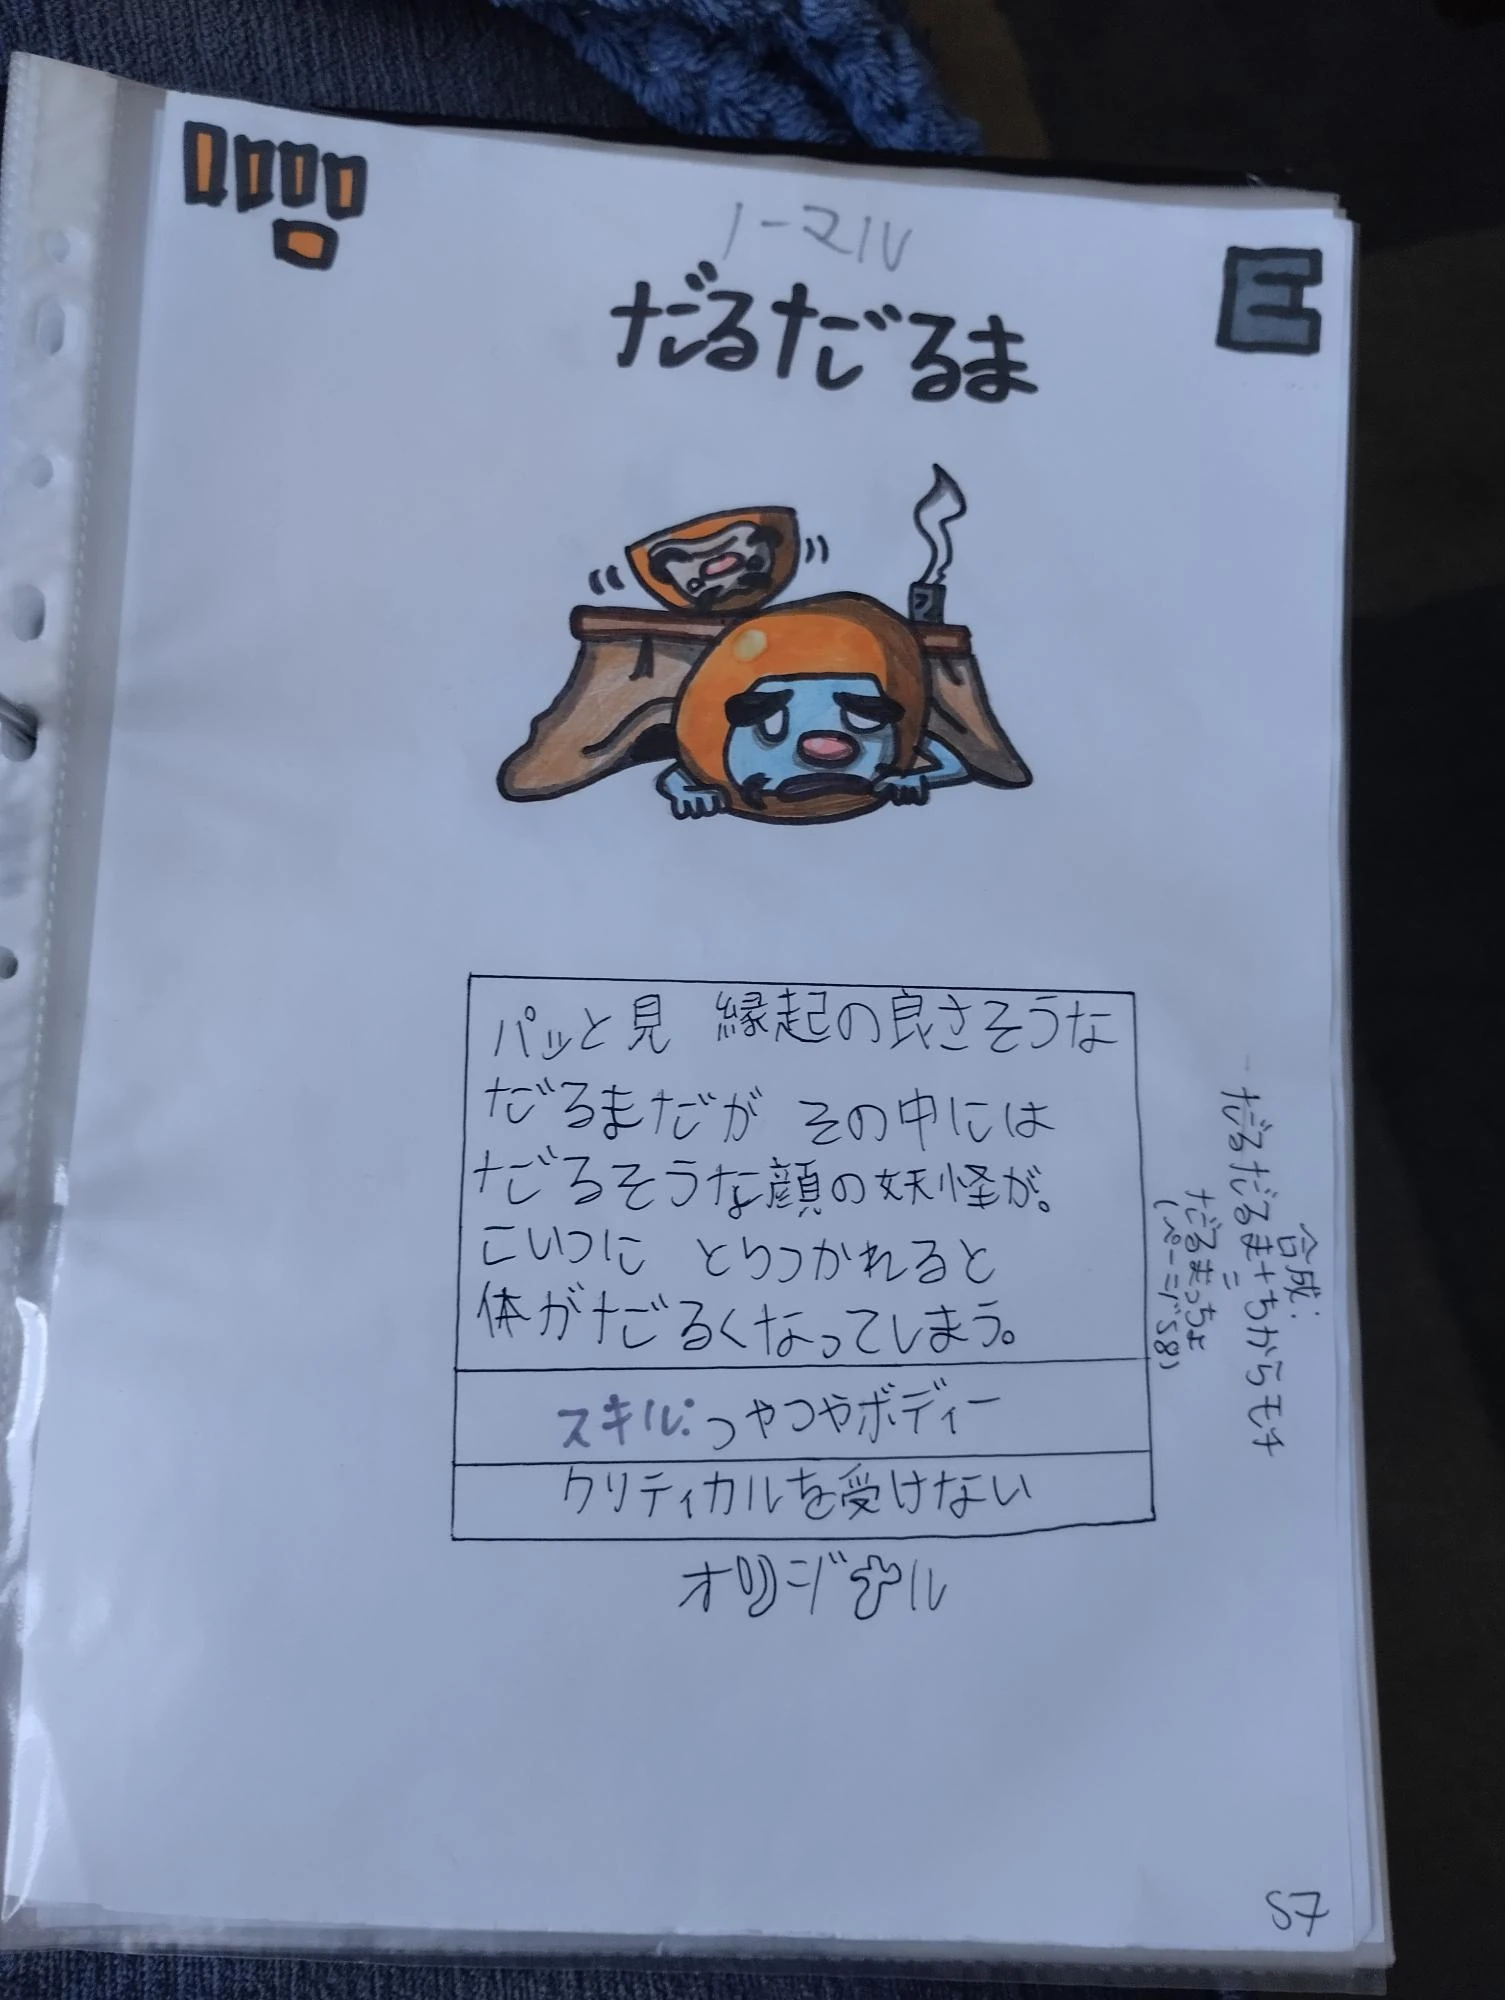 ノーマル
E
だるだるま
パッと見 縁起の良さそうな
だるまだが その中には
だるそうな顔の妖怪が。
こいつに とりつかれると
体がだるくなってしまう。
スキル:つやつやボディー
クリティカルを受けない
オリジナル
合成:
だるだるま+ちからモチ
=
だるまっちょ
(ページ58)
57